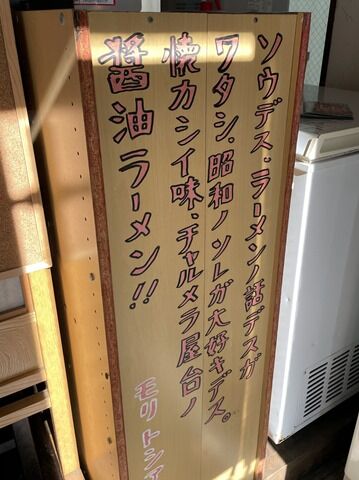 ソウデス、ラーメンノ話デスガ
ワタシ、昭和ノソレガ大好キデス。
懐カシイ味、チャルメラ屋台ノ
醤油ラーメン!!
モリ トシ